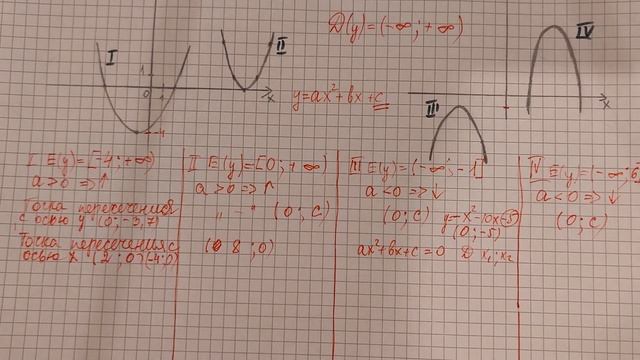 D(y)=(-∞;+∞)
I
II
IV
1
0
1
x
-4
y=ax²+bx+c
III
x
I E(y)=[-4;+∞)
a>0 =>↑
Точка пересечения
с осью y (0;-3,7)
Точка пересечения с
осью x (2;0)(-4;0)
II E(y)=[0;+∞)
a>0 =>↑
(0;c)
(8;0)
III E(y)=(-∞;-1]
a<0 =>↓
(0;c) y=-x²-10x-5
(0;-5)
ax²+bx+c=0 D x₁;x₂
IV E(y)=(-∞;6
a<0 =>↓
(0;c)